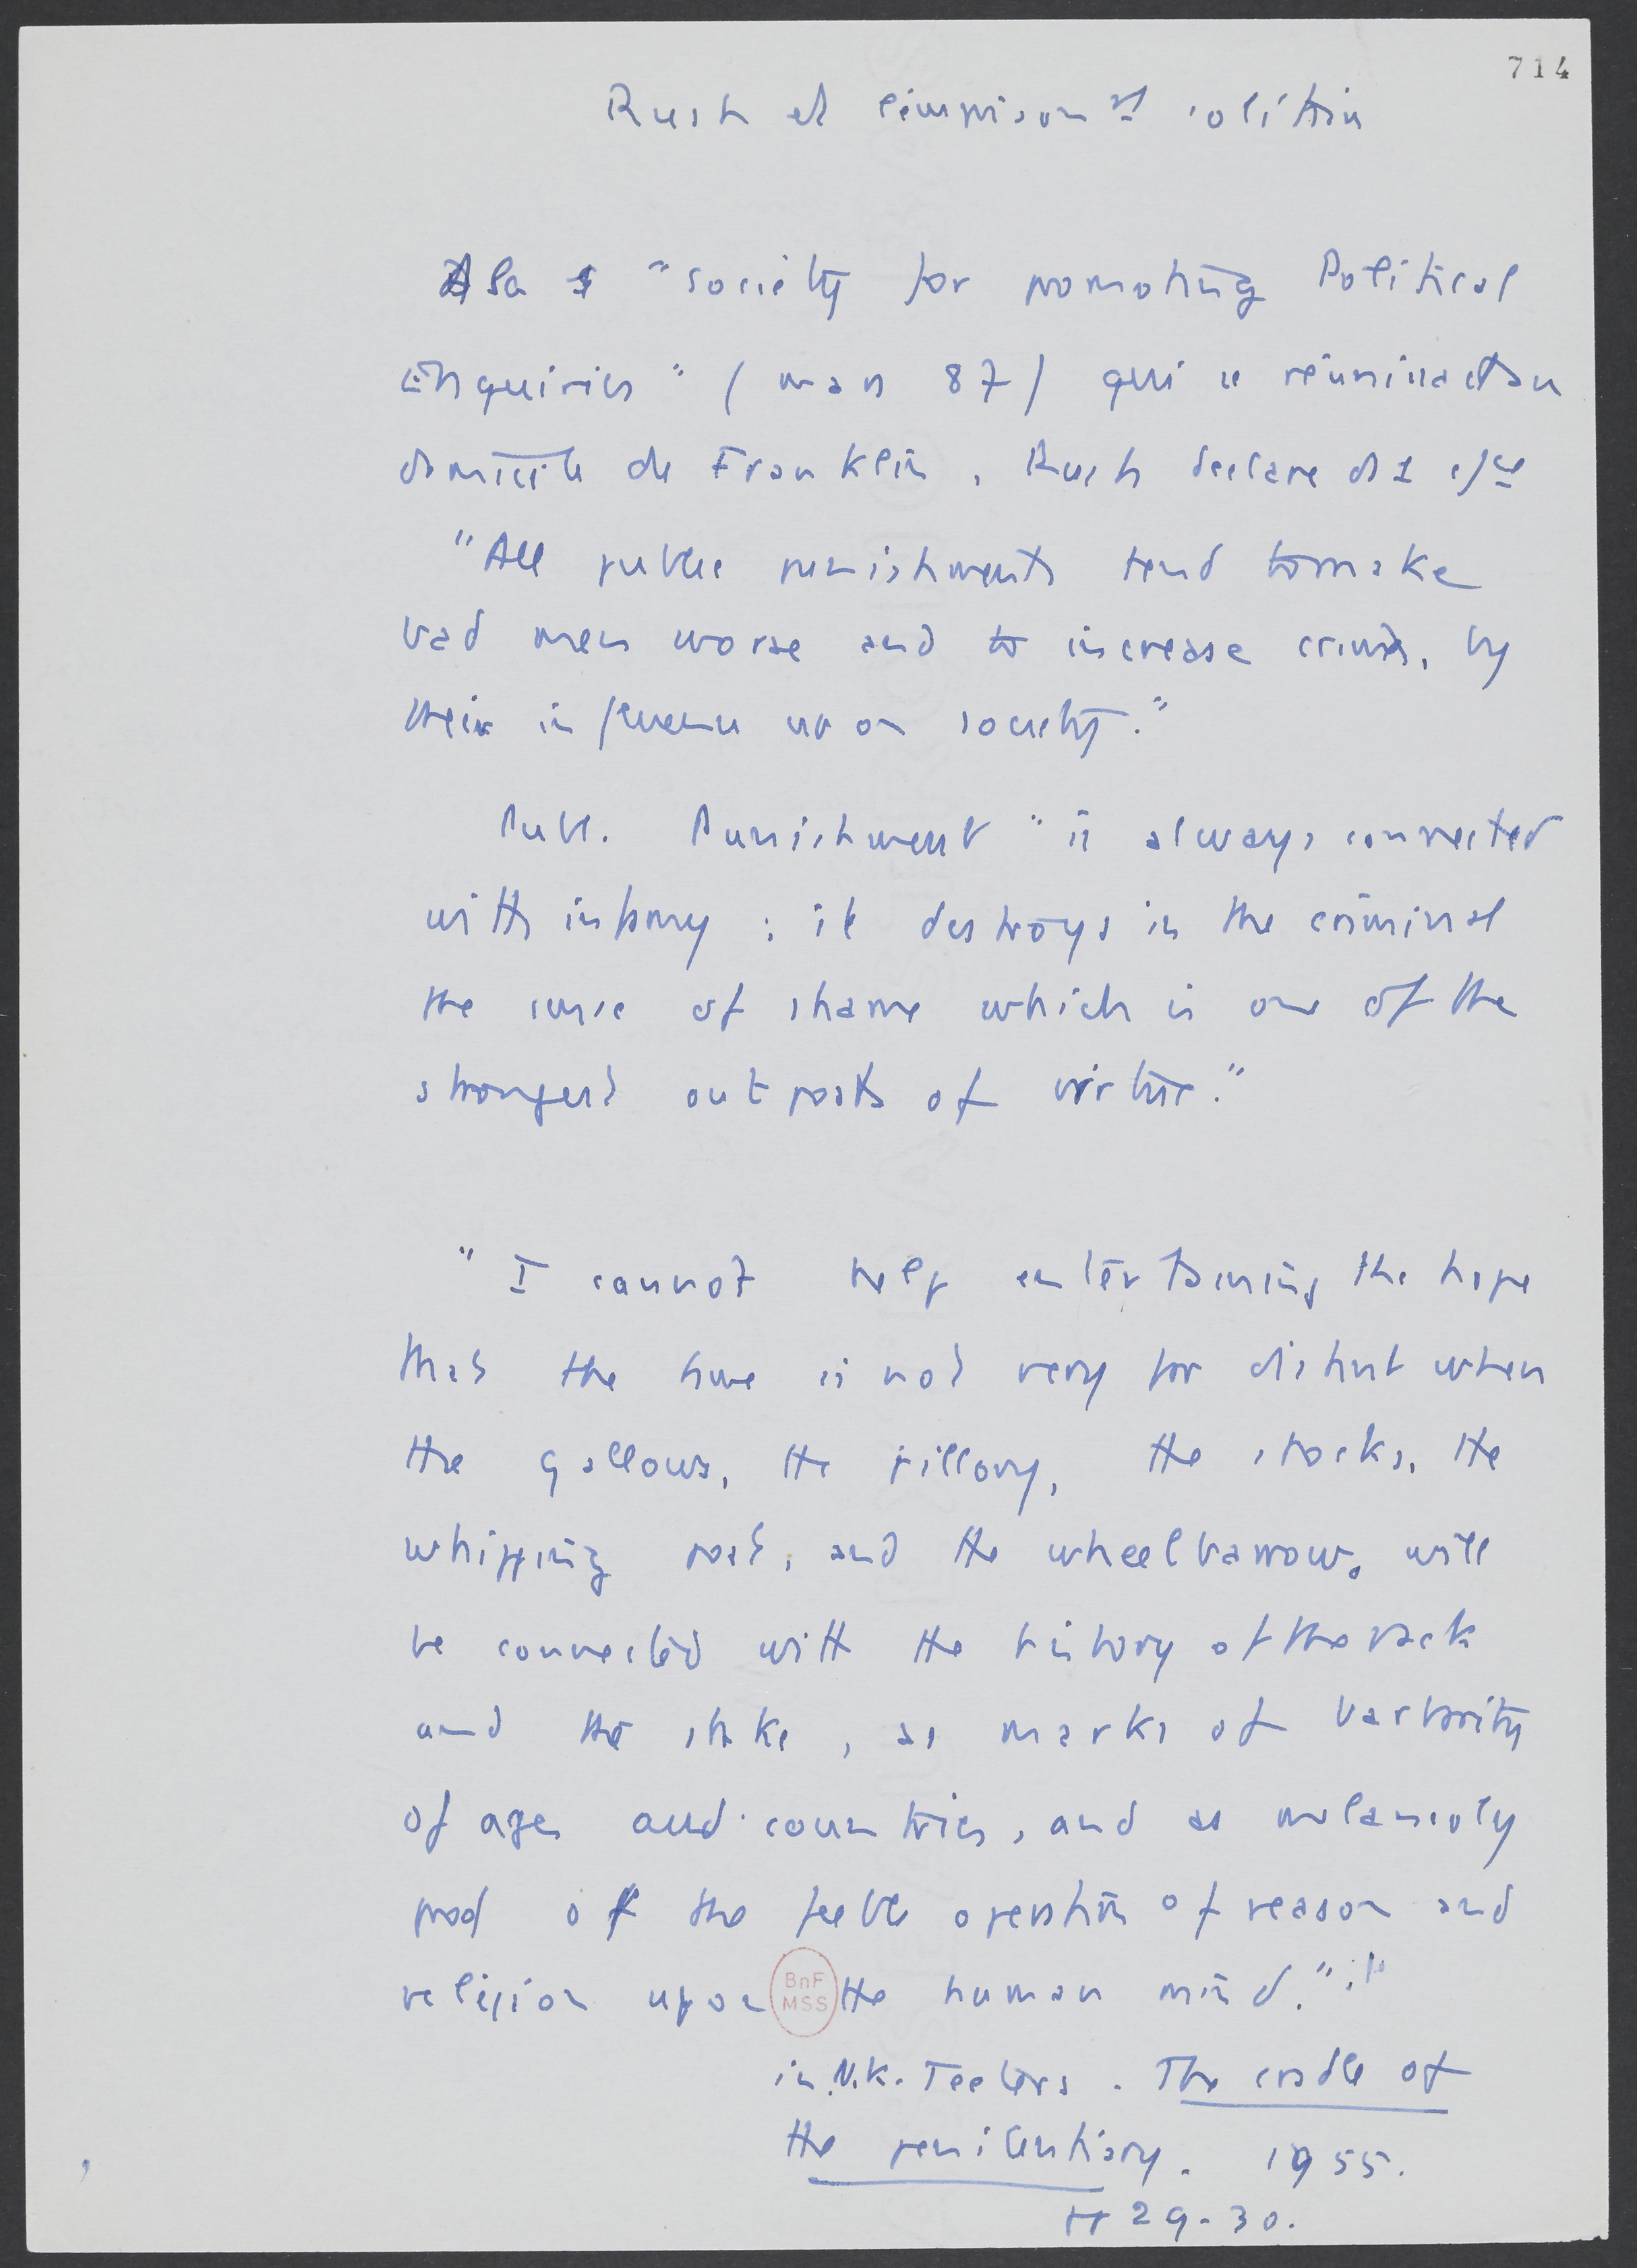 714
Rush et l'emprisonnt solitaire
A la "Society for promoting Political
Enquiries" (mars 87) qui se réunissait au
domicile de Franklin, Rush declare
"All public punishments tend to make
bad men worse and to increase crimes, by
their influence upon society."
Publ. Punishment "is always connected
with infamy ; it destroys in the criminal
the sense of shame which is one of the
strongest out posts of virtue."
"I cannot help entertaining the hope
that the time is not very far distant when
the gallows, the pillory, the stocks, the
whipping post, and the wheelbarrow, will
be connected with the history of the rack
and the stake, as marks of barbarity
of ages and countries, and as melancoly
proof of the feeble operation of reason and
religion upon the human mind."
BnF
MSS
in N.K. Teeters. The cradle of
the penitentiary. 1955.
pp 29-30.